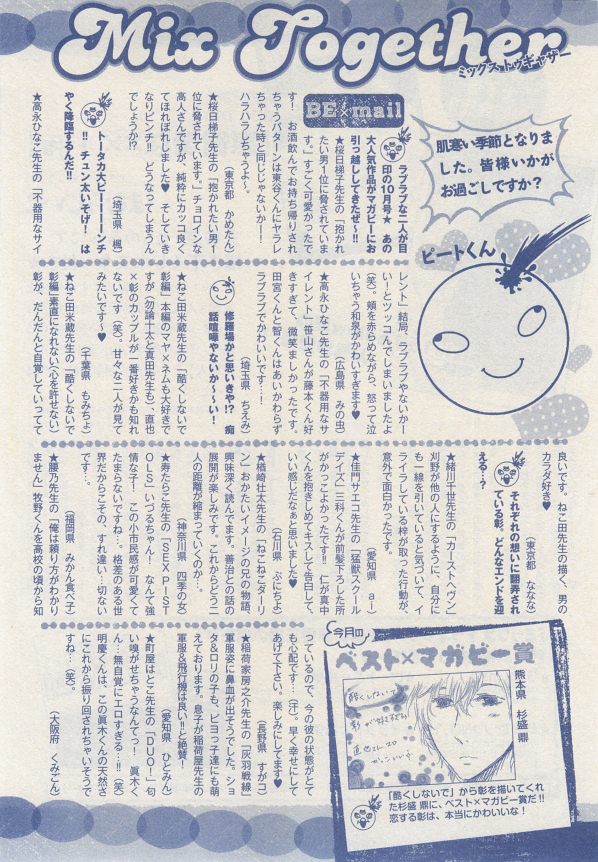 Mix Together
ミックス トゥギャザー
肌寒い季節となりま
した。皆様いかが
お過ごしですか?
ピートくん
BE×mail
ラブラブな二人が目
印の10月号★ あの
大人気作品がマガビーにお
引っ越ししてきたぜ〜!!
★桜日梯子先生の「抱かれ
たい男1位に脅されていま
す。」すごく可愛かったで
す! お酒飲んでお持ち帰りされ
ちゃうパターンは東谷くんにヤラレ
ちゃった時と同じじゃないかー!
ハラハラしちゃうよ〜。
(東京都 かめたん)
★桜日梯子先生の「抱かれたい男1
位に脅されています。」チョコインな
高人さんですが、純粋にカッコ良く
てほれぼれしました♥ そしていき
なりピンチ!! どうなってしまうん
でしょうか!?
(埼玉県 楓)
トータカ大ピーーーンチ
!! チュン太いそげ! は
やく降臨するんだ!!
★高永ひなこ先生の「不器用なサイ
レント」結局、ラブラブやないかー
い!とツッコんでしまいましたよ
(笑)。頬を赤らめながら、怒って泣
いちゃう和泉がかわいすぎます♥
(広島県 みの虫)
★高永ひなこ先生の「不器用なサ
イレント」笹山さんが藤本くん好
きすぎて、微笑ましかったです。
田宮くんと智くんはあいかわらず
ラブラブでかわいいです…!
(埼玉県 ちえみ)
修羅場かと思いきや!? 痴
話喧嘩やないか〜〜い!
★ねこ田米蔵先生の「酷くしないで
彰編」本編のマヤ×ネムも大好きで
すが(勿論十太と真田先生も)、直也
×彰のカップルが一番好きかも知れ
ないです(笑)。甘々な二人が見て
みたいです〜♥
(千葉県 もみちょ)
★ねこ田米蔵先生の「酷くしないで
彰編」素直になれない(心を許せない)
彰が、だんだんと自覚していってて
良いです。ねこ田先生の描く、男の
カラダ好き♥
(東京都 ななな)
それぞれの想いに翻弄され
ている彰、どんなエンドを迎
える…?
★緒川千世先生の「カーストヘヴン」
刈野が他の人にするように、自分に
も一線を引いていると気づいて、イ
ライラしている梓が取った行動が、
意外で面白かったです。
(愛知県 aー)
★佳門サエコ先生の「猛獣スクール
デイズ」三科くんが前髪下ろした所
がかっこよかったです!! 仁が真中
くんを抱きしめてキスして告白して、
いい感じだなぁと思いました♥
(石川県 ぷにちよ)
★楢崎壮太先生の「ねこねこダーリ
ン」おかたいイメージの兄の物語、
興味深く読んでます。善治との話の
展開が楽しみです。これからどう二
人の距離が縮まっていくのか…。
(神奈川県 四季の女)
★寿たらこ先生の「SEX PIST
OLS」いづるちゃん! なんて強
情な子! この小市民感が可愛くて
たまらないですね…。格差のある世
界だからこその、すれ違い…切ない
です…。
(福岡県 みかん食べ子)
★腰乃先生の「俺は頼り方がわかり
ません」牧野くんを高校の頃から知
っているので、今の彼の状態がとて
も心配です…(汗)。早く幸せにして
あげて下さい。楽しみにしてます♥
(長野県 すがコ)
★稲荷家房之介先生の「灰羽戦線」
軍服姿に鼻血が出そうでした。ショ
タ&ロリの子も、ピヨっ子達にも萌
えております。息子が稲荷屋先生の
軍服&飛行機は良い!!と絶賛!
(愛知県 ひとみん)
★町屋はとこ先生の「DUO!」匂
い嗅がせちゃうなんてっ! 眞木く
ん…無自覚にエロすぎる…!!(笑)
明慶くんは、この眞木くんの天然さ
にこれから振り回されちゃいそうで
すね…(笑)。
(大阪府 くみごん)
今月の
ベスト×マガビー賞
熊本県 杉盛鼎
酷くしないで
「酷くしないで」から彰を描いてくれ
た杉盛 鼎に、ベスト×マガビー賞だ!!
恋する彰は、本当にかわいいな!